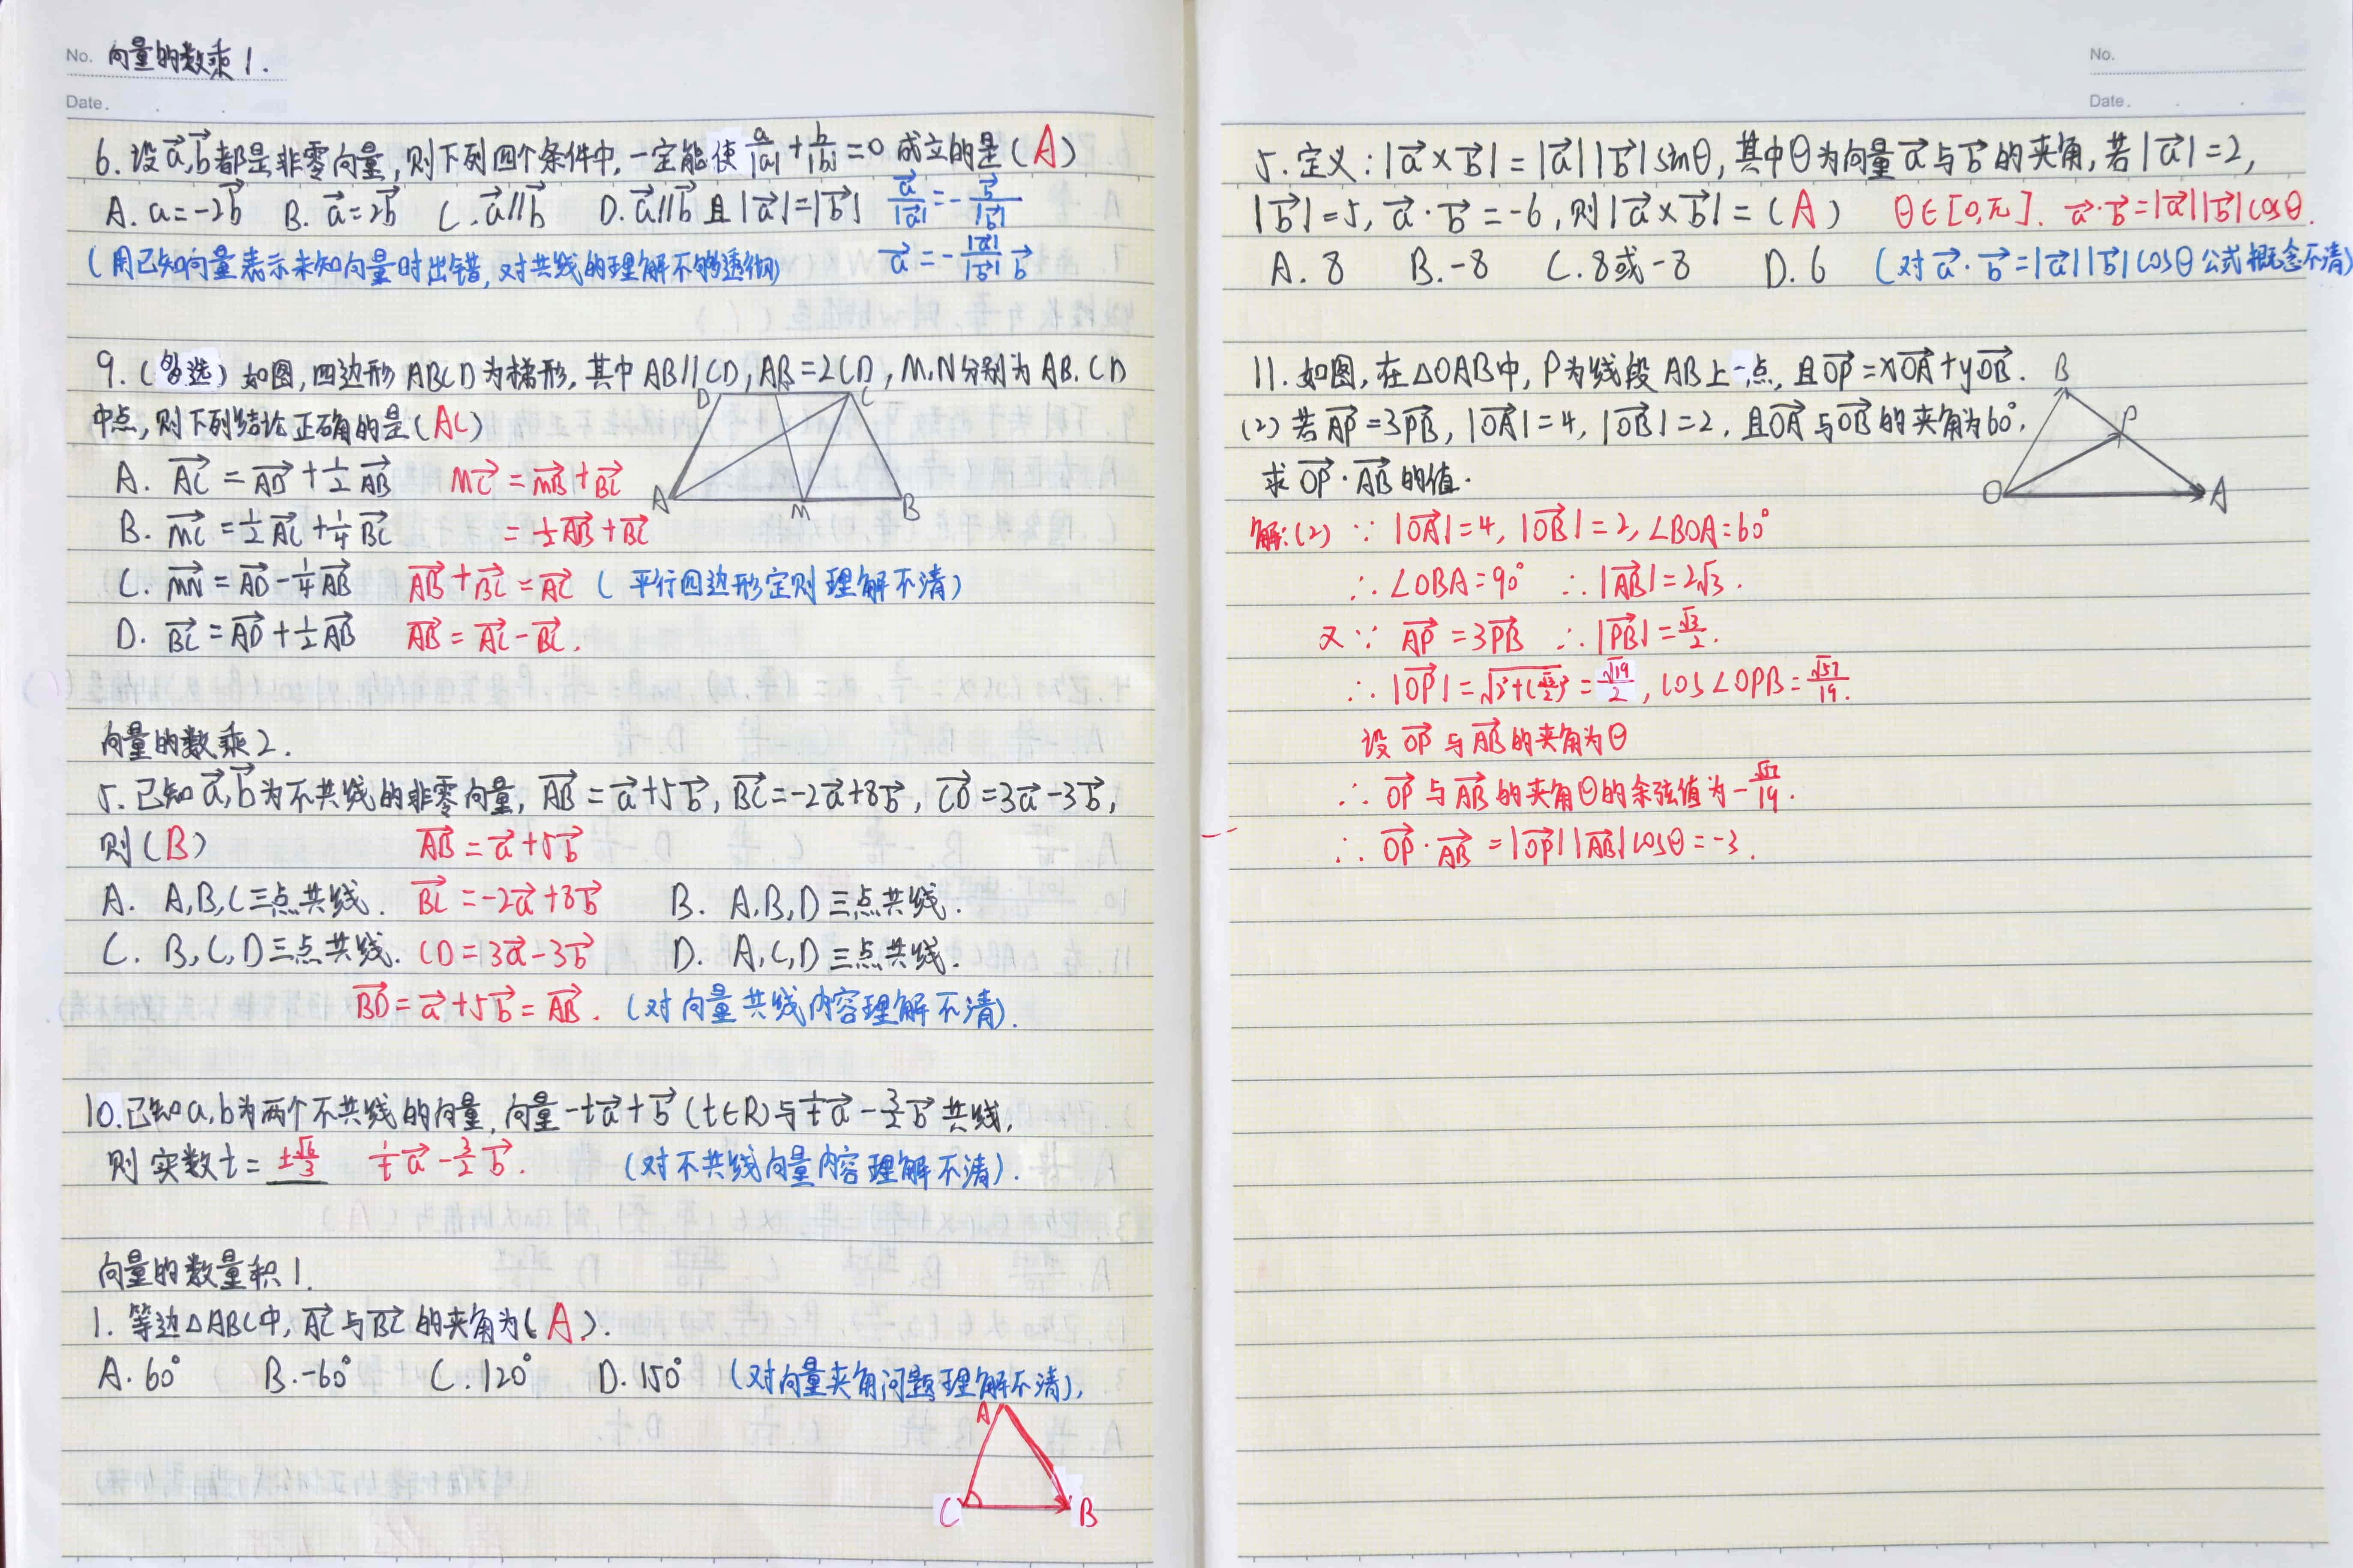 No. 向量的数乘1.
Date.
6.设a⃗,b⃗都是非零向量,则下列四个条件中,一定能使a/|a|+b/|b|=0成立的是(A)
A. a=-2b⃗ B. a⃗=2b⃗ C. a⃗//b⃗ D. a⃗//b⃗且|a⃗|=|b⃗| a⃗/|a⃗|=-b⃗/|b⃗|
(用已知向量表示未知向量时出错,对共线的理解不够透彻) a⃗=-|a⃗|/|b⃗| b⃗
9.(多选)如图,四边形ABCD为梯形,其中AB//CD,AB=2CD,M.N分别为AB.CD
中点,则下列结论正确的是(AC)
D C
A. AC→=AD→+1/2AB→ MC→=MB→+BC→
A M B
B. MC→=1/2AC→+1/4BC→ =1/2AB→+BC→
C. MN→=AD→-1/4AB→ AB→+BC→=AC→ (平行四边形定则理解不清)
D. BC→=AD→+1/2AB→ AB→=AC→-BC→.
向量的数乘2.
5.已知a⃗,b⃗为不共线的非零向量,AB→=a⃗+5b⃗,BC→=-2a⃗+8b⃗,CD→=3a⃗-3b⃗,
则(B) AB→=a⃗+5b⃗
A. A,B,C三点共线. BC→=-2a⃗+8b⃗ B. A,B,D三点共线.
C. B,C,D三点共线. CD=3a⃗-3b⃗ D. A,C,D三点共线.
BD→=a⃗+5b⃗=AB→. (对向量共线内容理解不清).
10.已知a,b为两个不共线的向量,向量-ta⃗+b⃗(t∈R)与1/t a⃗-3/2 b⃗共线,
则实数t=±√6/3 1/t a⃗-3/2 b⃗. (对不共线向量内容理解不清).
向量的数量积1.
1.等边△ABC中,AC→与BC→的夹角为(A).
A.60° B.-60° C.120° D.150° (对向量夹角问题理解不清).
A
C B
No.
Date.
5.定义:|a⃗×b⃗|=|a⃗||b⃗|sinθ,其中θ为向量a⃗与b⃗的夹角,若|a⃗|=2,
|b⃗|=5,a⃗·b⃗=-6,则|a⃗×b⃗|=(A) θ∈[0,π]. a⃗·b⃗=|a⃗||b⃗|cosθ.
A. 8 B.-8 C.8或-8 D.6 (对a⃗·b⃗=|a⃗||b⃗|cosθ公式概念不清)
11.如图,在△OAB中,P为线段AB上一点,且OP→=xOA→+yOB→.
B
(2)若AP→=3PB→,|OA→|=4,|OB→|=2,且OA→与OB→的夹角为60°,
P
求OP→·AB→的值.
O A
解:(2) ∵|OA→|=4,|OB→|=2,∠BOA=60°
∴∠OBA=90° ∴|AB→|=2√3.
又∵AP→=3PB→ ∴|PB→|=√3/2.
∴|OP→|=√2²+(√3/2)²=√19/2,cos∠OPB=√57/19.
设OP→与AB→的夹角为θ
∴OP→与AB→的夹角θ的余弦值为-√57/19.
∴OP→·AB→=|OP→||AB→|cosθ=-3.